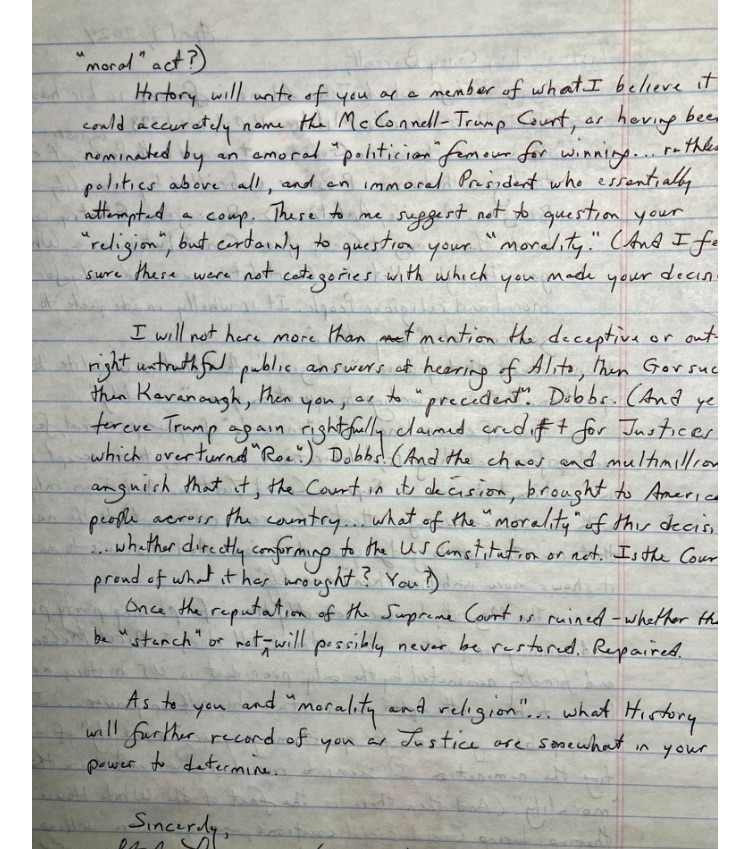 "moral" act?)
History will write of you as a member of what I believe it
could accurately name the McConnell-Trump Court, as having been
nominated by an amoral "politician" famous for winning... ruthles
politics above all, and an immoral President who essentially
attempted a coup. These to me suggest not to question your
"religion", but certainly to question your "morality." (And I fe
sure these were not categories with which you made your decis
I will not here more than mention the deceptive or out-
right untruthful public answers at hearing of Alito, then Gorsuc
then Kavanaugh, then you, as to "precedent". Dobbs. (And ye
tereve Trump again rightfully claimed credit for Justices
which overturned "Roe".) Dobbs! (And the chaos and multimillion
anguish that it, the Court in its decision, brought to America
people across the country... what of the "morality" of this decis
... whether directly conforming to the US Constitution or not. Is the Cour
proud of what it has wrought? You?)
Once the reputation of the Supreme Court is ruined - whether the
be "stench" or not - will possibly never be restored. Repaired.
As to you and "morality and religion"... what History
will further record of you as Justice are somewhat in your
power to determine.
Sincerely,